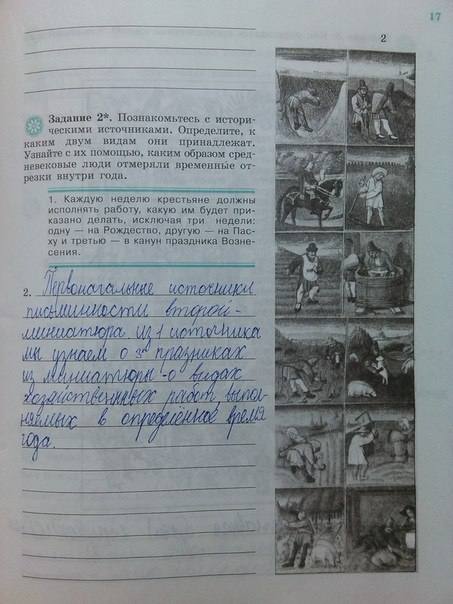 17
2
Задание 2*. Познакомьтесь с истори-
ческими источниками. Определите, к
каким двум видам они принадлежат.
Узнайте с их помощью, каким образом сред-
невековые люди отмеряли временны́е от-
резки внутри года.
1. Каждую неделю крестьяне должны
исполнять работу, какую им будет при-
казано делать, исключая три недели:
одну — на Рождество, другую — на Пас-
ху и третью — в канун праздника Возне-
сения.
2. Первоначальные источники
письменности второй-
миниатюра из 1 источника
мы узнаем о 3х празниках
из миниатюры-о видах
хозяйственных работ, выпол-
няемых в определённое время
года.